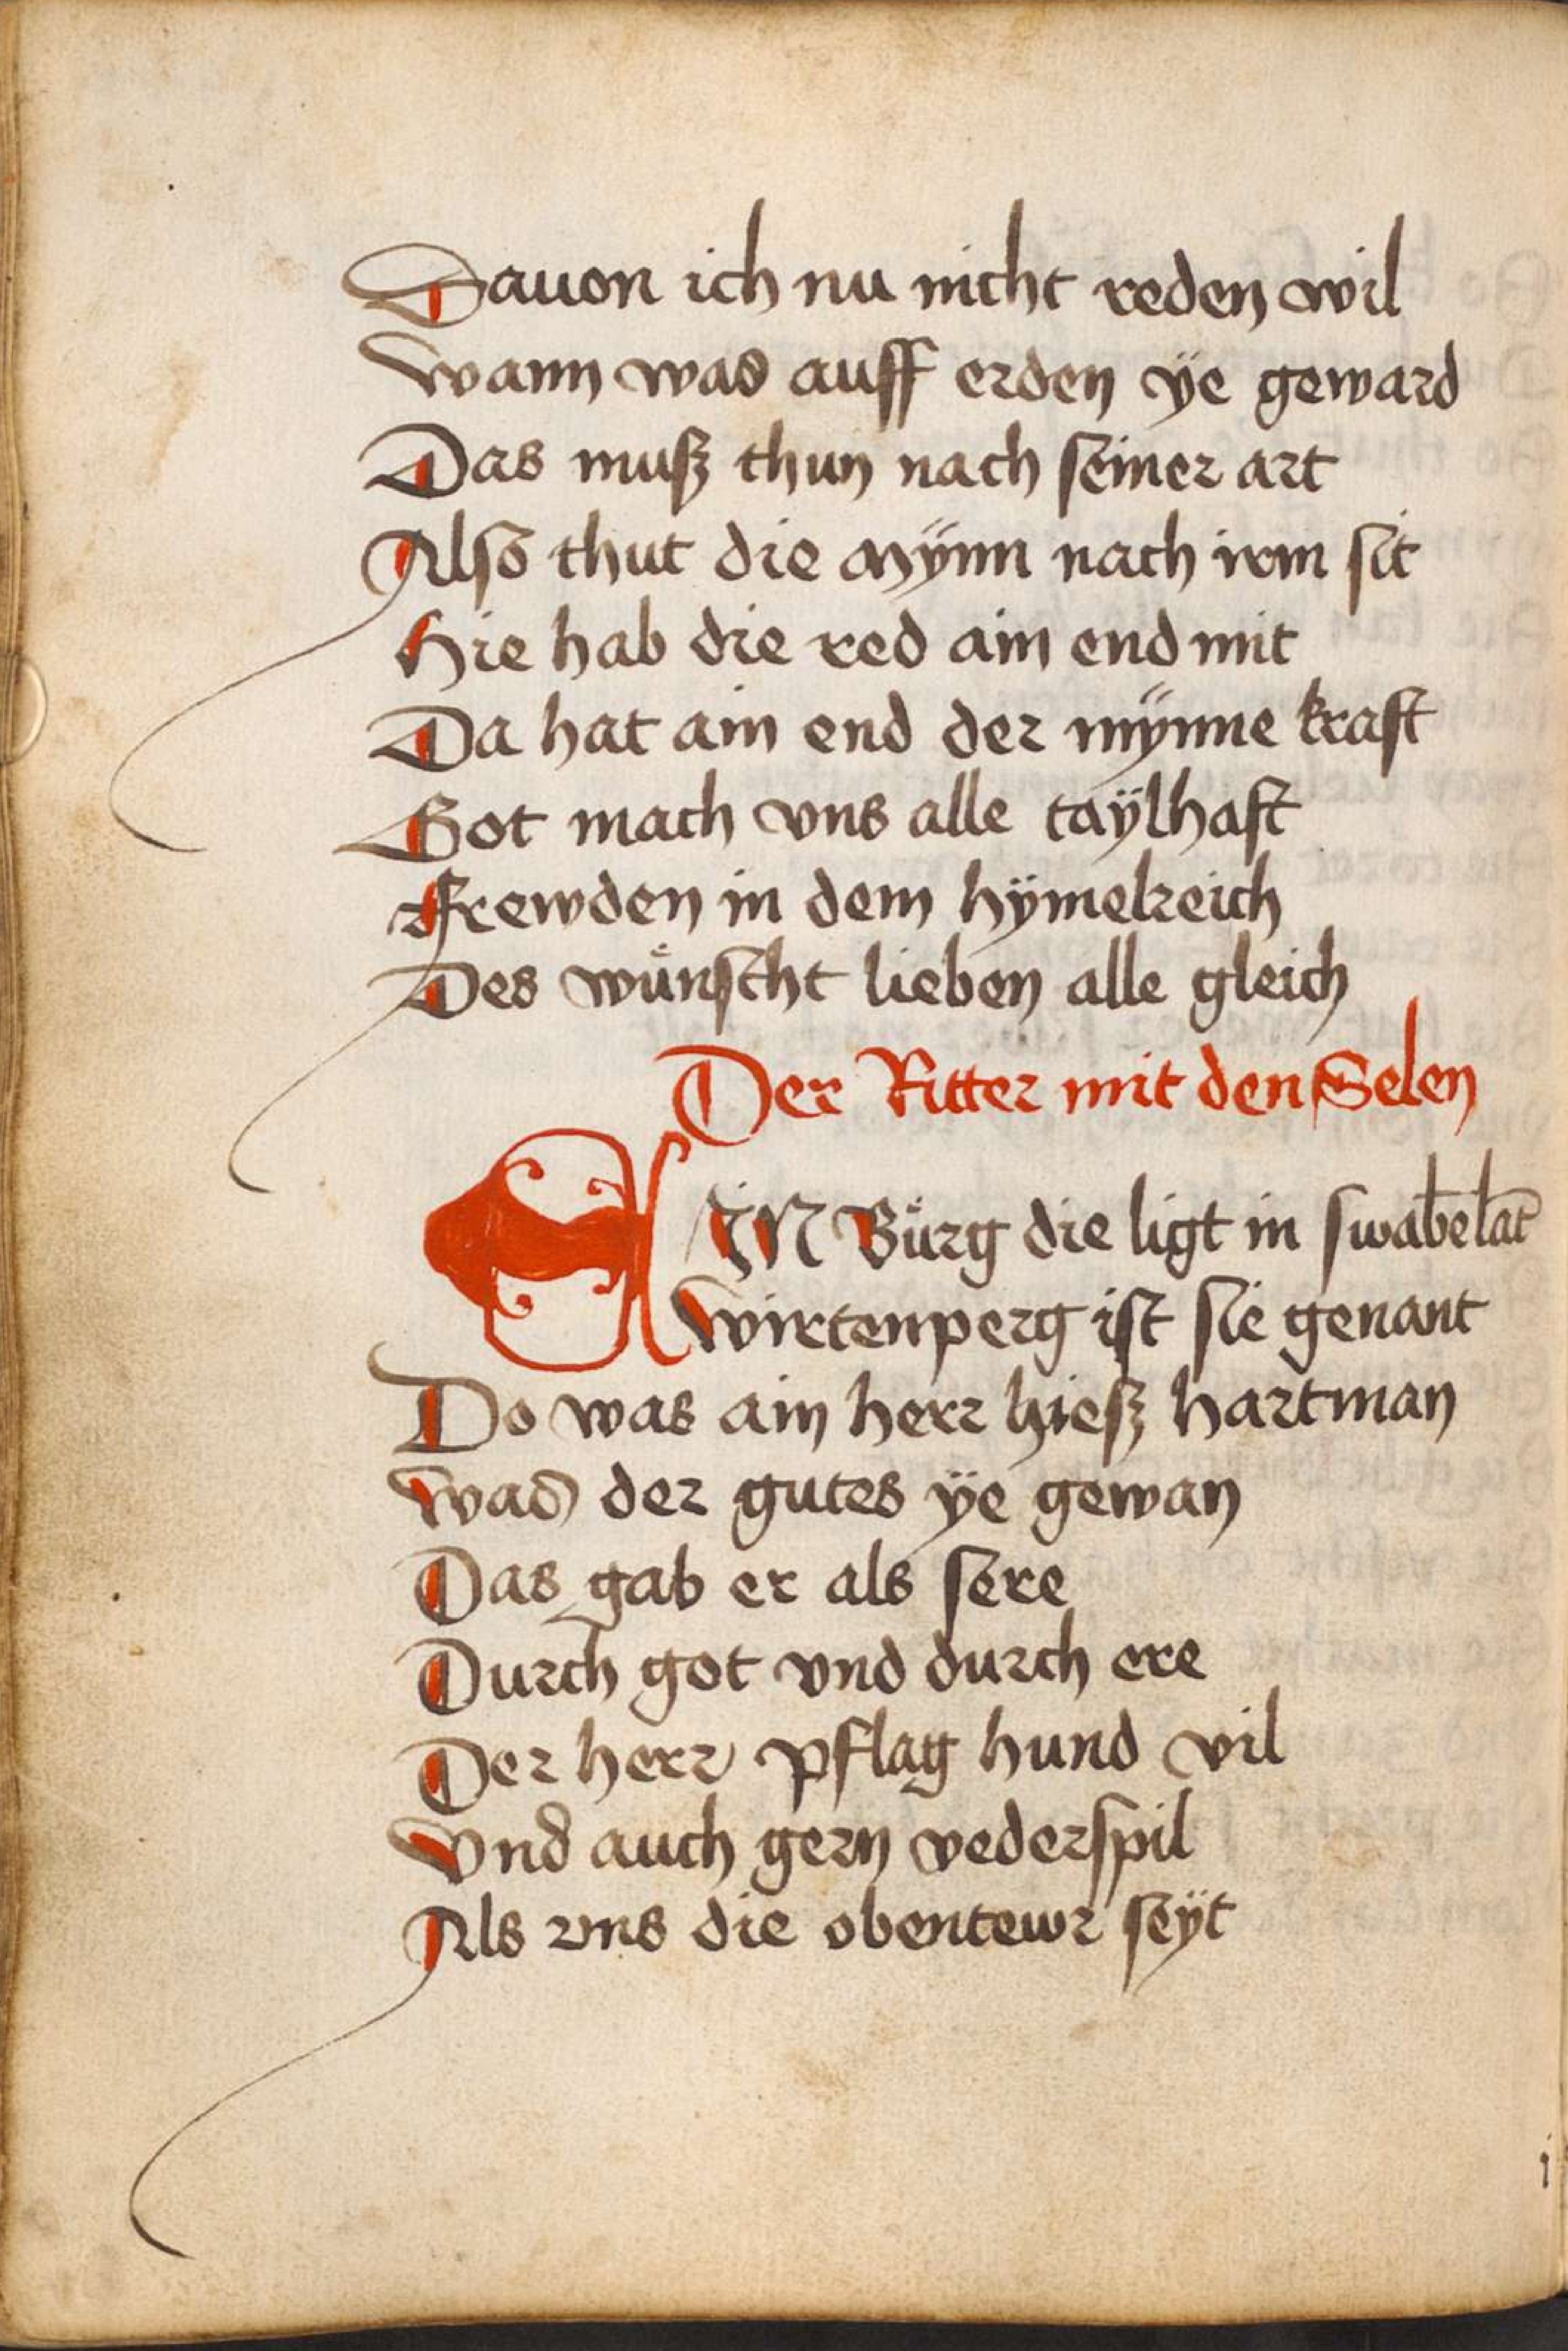 Dauon ich nu nicht reden wil
Wann was auff erden ÿe geward
Das muſz thun nach ſeiner art
Alſo thut die mÿnn nach irm ſit
Hie hab die red ain end mit
Da hat ain end der mÿnne kraft
Got mach vns alle taÿlhaft
Frewden in dem hÿmelreich
Des wuͤnſcht lieben alle gleich
Der Ritter mit den Selen
EIN Buͤrg die ligt in ſwab̄elāt
Wirtenperg iſt ſie genant
Do was ain herr hieſz hartman
Was der gutes ÿe gewan
Das gab er als ſere
Durch got vnd durch ere
Der herr pflag hund vil
Vnd auch gern vederſpil
Als vns die obentewr ſeÿt